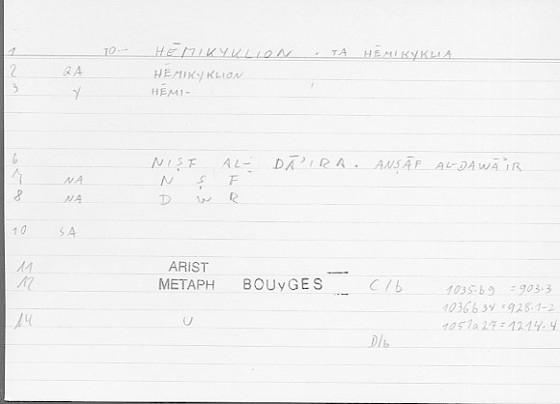 1 TO— HĒMIKYKLION . TA HĒMIKYKLIA
2 QA HĒMIKYKLION
3 Y HĒMI-
6 NIṢF AL- DĀ'IRA . ANṢĀF AL-DAWĀ'IR
7 NA N Ṣ F
8 NA D W R
10 SA
11 ARIST
12 METAPH BOUyGES C/b 1035.b9 = 903.3
1036b34 = 928.1-2
14 U 1051a27 = 1214.4
D/b